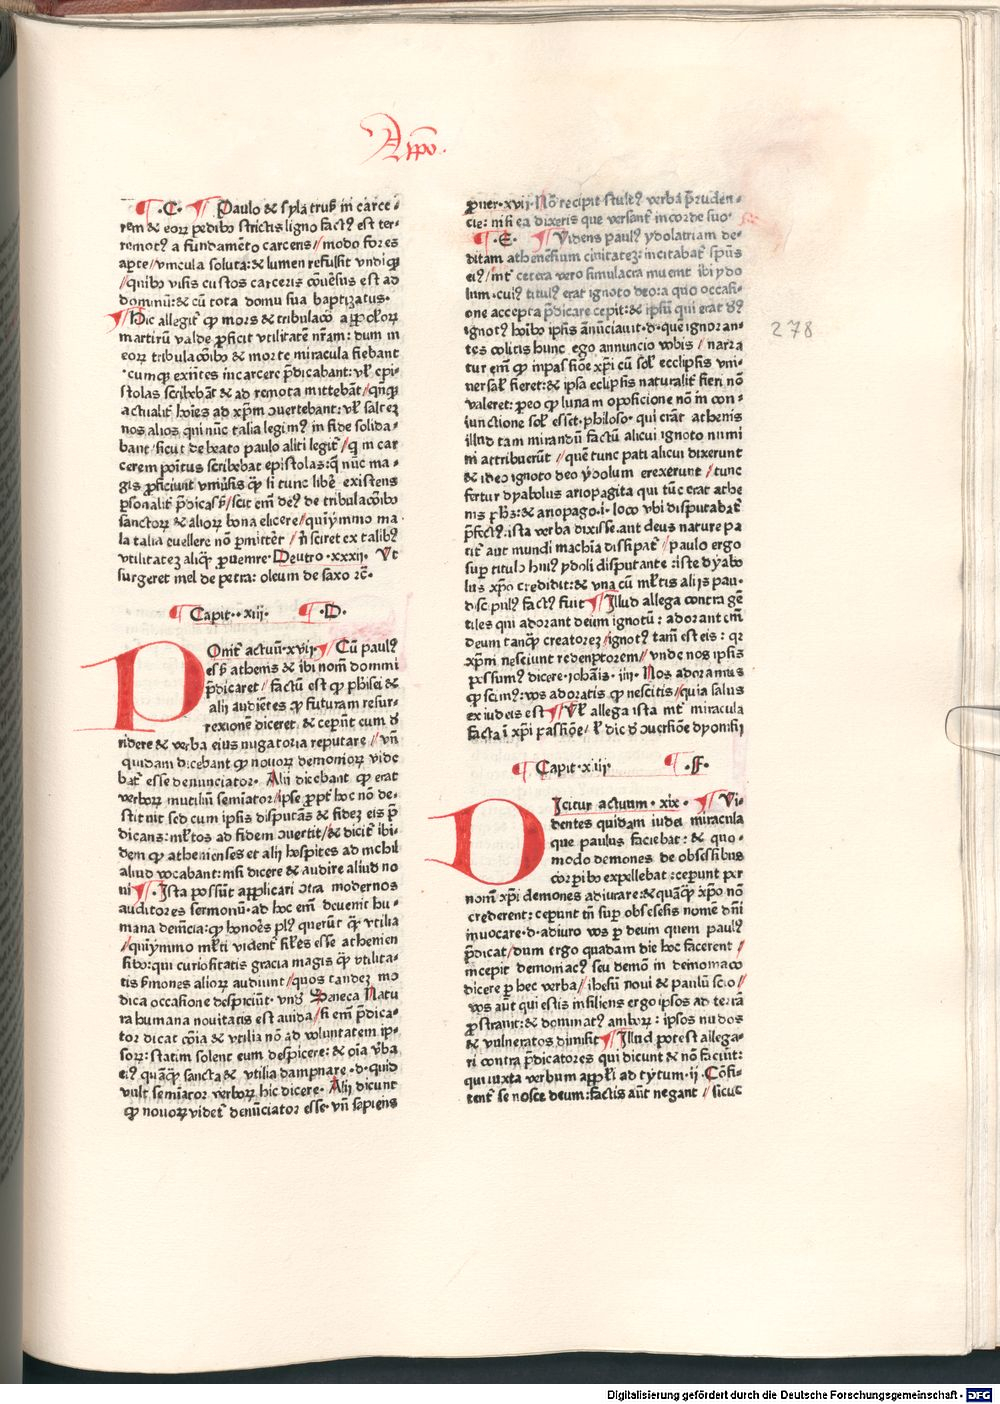 Appo.
¶ .C. ¶ Paulo & syla trusꝭ in carce⸗
rem & eoꝝ pedibꝰ strictis ligno factꝰ est ter⸗
remotꝰ a fundamēto carceris / modo fores
apte / vincula soluta: & lumen refulsit vndiqꝫ
/ quibꝰ visis custos carceris cōuersus est ad
dominū: & cū tota domu sua baptizatus.
¶ Hic allegit̃ qꝫ mors & tribulacō apꝑloꝝ
martirū valde ꝓficit vtilitatē nr̄am: dum in
eoꝝ tribulacōibꝰ & morte miracula fiebant
cumqꝫ exn̄tes in carcere p̄dicabant: vl̃ epi⸗
stolas scribebāt & ad remota mittebāt / qn̄qꝫ
actualit̃ hoīes ad xp̄m ↄuertebant: vl̃ saltez
nos alios qui nūc talia legimꝰ in fide solida⸗
bant / sicut de beato paulo aliti legit̃ / qꝫ in car
cerem poītus scribebat epistolas: q̄ nūc ma⸗
gis ꝓficiunt vniūsis qꝫ si tunc libē existens
ꝑsonalit̃ p̄dicasꝫ / scit em̄ deꝰ de tribulacōibꝰ
sanctoꝝ & alioꝝ bona elicere / quiȳmmo ma
la talia euellere nō ꝑmittēt / n̄ sciret ex talibꝰ
vtilitatez aliqꝫ ꝓuenire. Deutro. xxxij. Vt
surgeret mel de petra: oleum de saxo ⁊c̄.
¶ Capit. xiij. ¶ .D.
POnit̃ actuū. xvij. ¶ Cū paulꝰ
esꝫ athenis & ibi nom̄ domini
p̄dicaret / factū est qꝫ phisei &
alij audiētes qꝫ futuram resur⸗
rexionē diceret. & ceper̄nt eum d̓
ridere & verba eius nugatoria reputare / vn̄
quidam dicebant qꝫ nouoꝝ demonioꝝ vide
bat̃ esse denunciator. Alij dicebant qꝫ erat
verboꝝ mutiliū semiātor / ipse ꝓpt̃ hoc nō de⸗
stitit sed cum ipsis disputās & fidez eis p̄
dicans: ml̃tos ad fidem ↄuertit / & dicit̃ ibi⸗
dem qꝫ athenienses et alij hospites ad nichil
aliud vocabant: nisi dicere & audire aliud no
ui ¶ . Ista possūt applicari ↄtra modernos
auditores sermonū. ad hoc em̄ deuenit hu⸗
mana demēcia: qꝫ hoīes plꝰ querūt qꝫ vtilia
/ quiȳmmo ml̃ti vident̃ sil̃es esse athenien
sibꝰ: qui curiositatis gracia magis qꝫ vtilita⸗
tis s̄mones alioꝝ audiunt / quos tandez mo
dica occasione despiciūt. vnđ Seneca Natu
ra humana nouitatis est auida / si em̄ p̄dica⸗
tor dicat cōia & vtilia nō ad voluntatem ip⸗
soꝝ: statim solent eum despicere: & oīa v̄ba
eiꝰ quāqꝫ sancta & vtilia dampnare. d. quid
vult semiātor verboꝝ hic dicere. Alij dicunt
qꝫ nouoꝝ videt̃ denūciator esse. vn̄ sapiens
ꝓuer. xvij. Nō recipit stultꝰ verba pruden⸗
cie: nisi ea dixeris que versant̃ in corde suo.
¶ .E. ¶ Videns paulꝰ ydolatriam de⸗
ditam atheniensium ciuitatez: incitabat̃ spūs
eiꝰ / int̃ cetera vero simulacra inuenit ibi ydo
lum. cuiꝰ titulꝰ erat ignoto deo: a quo occasi⸗
one accepta p̄dicare cepit: & ipsū qui erat dꝰ
ignotꝰ hoībꝰ ipsis ānūciauit. d. que ignoran⸗
tes colitis hunc ego annuncio vobis / narra
tur em̄ qꝫ in passiōe xp̄i cū sol̃ ecclipsis vni⸗
uersal̃ fieret: & ipsa eclipsis naturalit̃ fieri nō
valeret: ꝓeo qꝫ luna in oposicione nō in con⸗
iunctione sol̃ esset. philoso. qui erāt athenis
illud tam mirandū factū alicui ignoto numi
ni attribuerūt / quē tunc pati alicui dixerunt
& ideo ignoto deo ydolum erexerunt / tunc
fertur dyabolus ariopagita qui tūc erat athe
nis pꝛbꝫ: & ariopago. i. loco vbi disputabat̃
p̄fectꝰ: ista verba dixisse. aut deus nature pa
tit̃ aut mundi machia dissipat̃ / paulo ergo
suꝑ titulo huiꝰ ydoli disputante: iste dyabo
lus xp̄o credidit: & vna cū ml̃tis alijs pau.
discipulꝰ factꝰ fuit ¶ Illud allega contra gē
tiles qui adorant deum ignotū: adorant em̄
deum tanqꝫ creatorez / ignotꝰ tam̄ est eis: qꝛ
xp̄m nesciunt redemptorem / vnde nos ipsis
possumꝰ dicere. iohāis. iiij. Nos adoramus
qꝫ scimꝰ: vos adoratis qꝫ nescitis / quia salus
ex iudeis est ¶ Vl̃ allega ista int̃ miracula
facta ī xp̄i passiōe / l̃ dic đ ↄuersiōe dyonisij
¶ Capit. xiiij. ¶ .F.
DIcitur actuum. xix. ¶ Vi⸗
dentes quidam iudei miracula
que paulus faciebat: & quo⸗
modo demones de obsessibus
corꝑibꝰ expellebat: ceperunt per
nom̄ xp̄i demones adiurare: & quāqꝫ xp̄o nō
crederent: ceperunt tn̄ super obsessis nomē dn̄i
inuocare. d. adiuro vos ꝑ deum quem paulꝰ
p̄dicat / dum ergo quadam die hoc facerent /
incepit demoniacꝰ seu demō in demoniaco
dicere ꝑ hec verba / ihesū noui & paulū scio /
vos aūt qui estis insiliens ergo ipsos ad terrā
ꝓstrauit: & dominatꝰ amboꝝ: ipsos nudos
& vulneratos dimisit ¶ Illud potest allega⸗
ri contra p̄dicatores qui dicunt & nō faciūt:
qui iuxta verbum appl̃i ad tytum. ij. Cōfi⸗
tent̃ se nosce deum: factis aūt negant / sicut
278
Digitalisierung gefördert durch die Deutsche Forschungsgemeinschaft - DFG